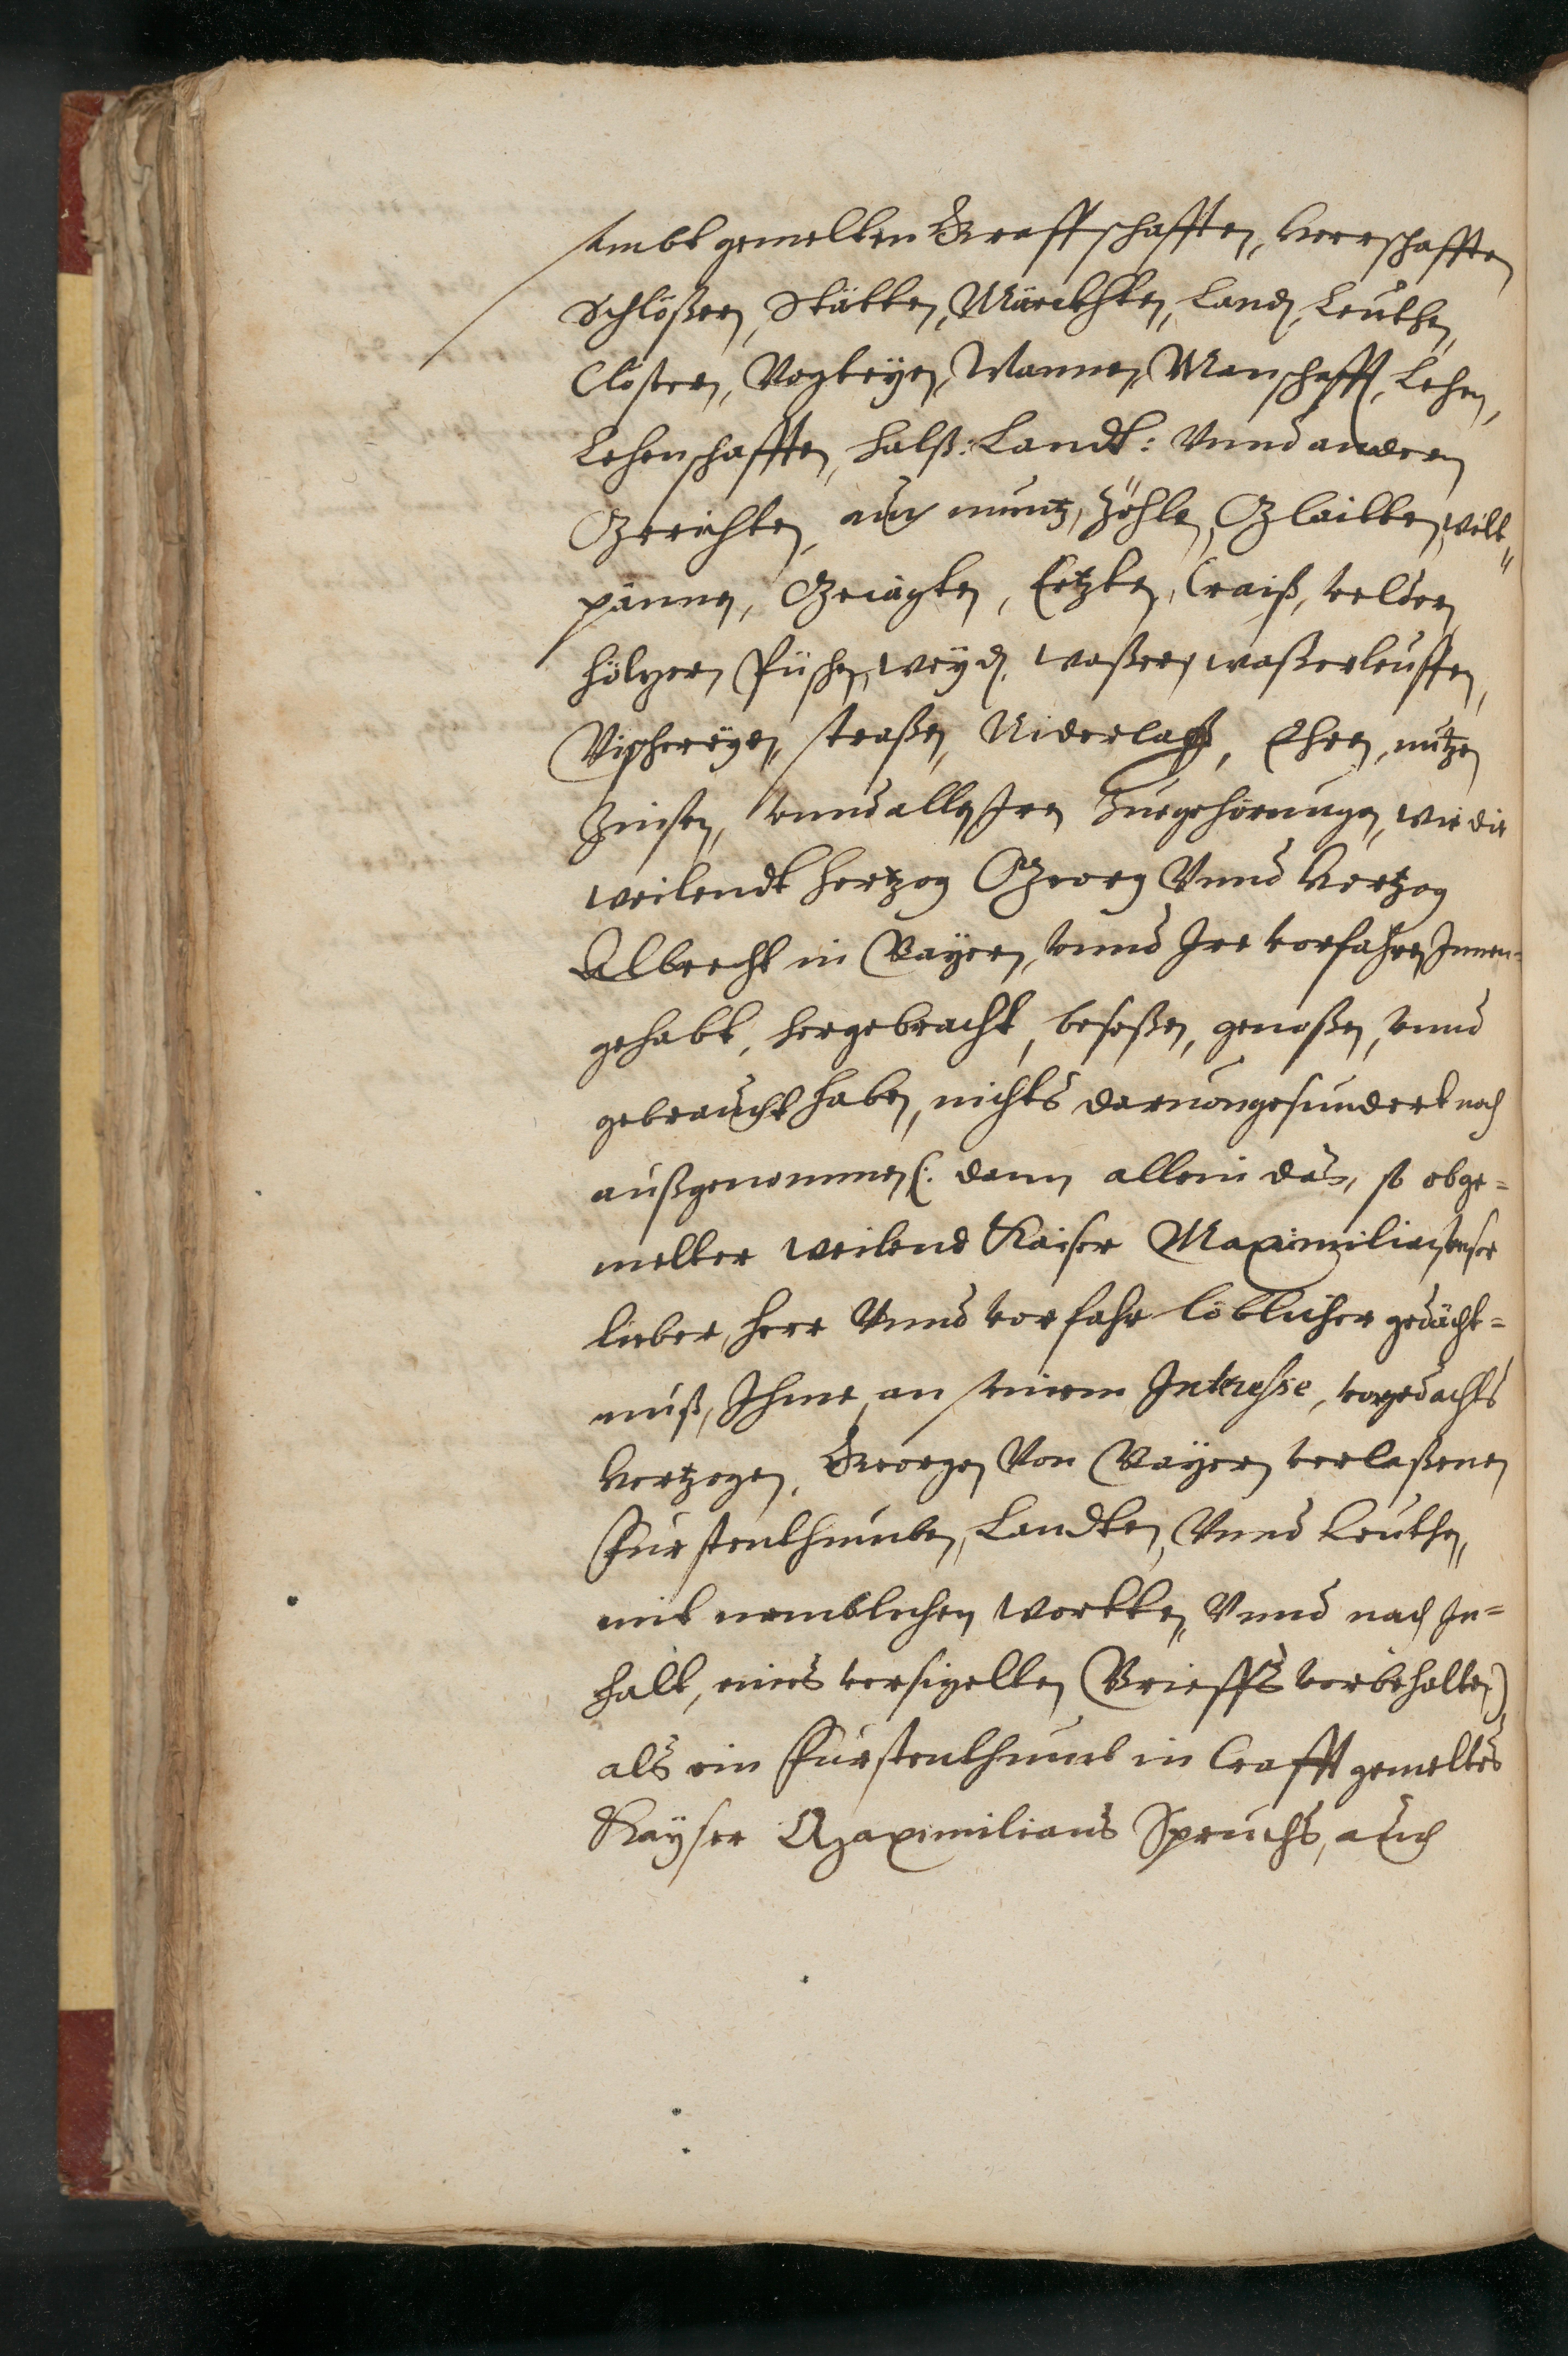 sambt gemelten Graffschafften, Herrschafften
Schlößern, Stätten, Märckhten, Land, Leuthen,
Clöstern, Vogteyen, Mannen, Manschafft, Lehen,
Lehenschafften, Halß: Landt: Vnnd andern
Gerichten, auch muntz, Zöhle, Glaitten, wilt„
pännen, Geiägten, Ertzten, Craiß, veldern
höltzern Püschen, weyd, waßern, waßerleuffen,
Vischereyen, straßen, Niderlag, Ehren, nutzen
Zinsen, vnnd allen Iren Zuegehörungen, wie die
weilendt Hertzog Georg Vnnd Hertzog
Albrecht in Bayern, vnnd Ire vorfahren Innen=
gehabt, hergebracht, beseßen, genoßen, vnnd
gebraucht haben, nichts daruon gesundert noch
außgenommen (: dann allein das, so obge=
melter weilend Kaiser Maximilian vnser
lieber, Herr Vnnd vorfahr löblicher gedächt=
nuß, Ihme, an seinem Interesse, vorgedachts
Hertzogen, Georgen Von Bayern verlaßenen
Fürstenthumben, Landten, Vnnd Leuthen,
mit nemblichen wortten, Vnnd nach In=
halt, eines versigelten Brieffs vorbehalten)
als ein Fürstenthumb in Crafft gemeltes
Kayser Maximilians Spruchs, auch